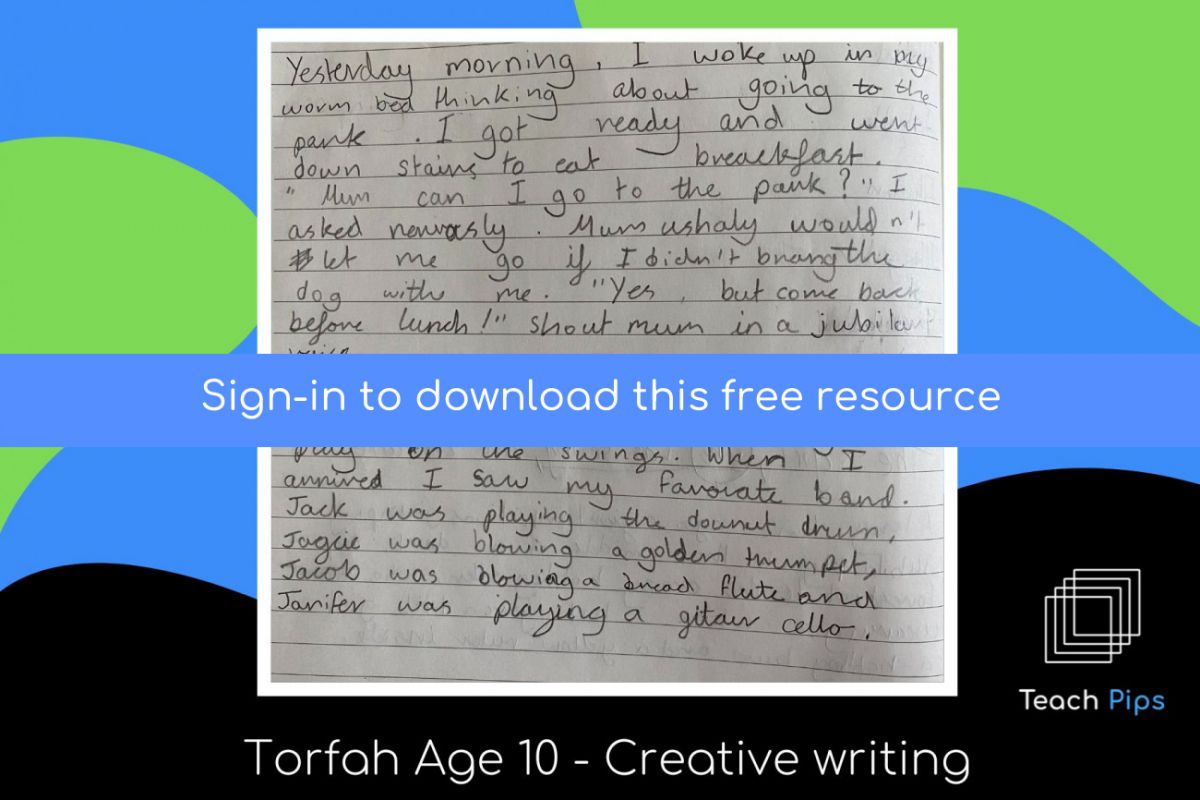 Yesterday morning, I woke up in my
worm bed thinking about going to the
park. I got ready and went
down stairs to eat breackfast.
"Mum can I go to the park?" I
asked nervosly. Mum ushaly wouldn't
let me go if I didn't brang the
dog with me. "Yes, but come back
before lunch!" shout mum in a jubilant
Sign-in to download this free resource
on the swings. When I
arrived I saw my favorate band.
Jack was playing the dounut drum,
was blowing a golden trumpet,
Jacob was blowing a bread flute and
Janifer was playing a gitaur cello.
Teach Pips
Torfah Age 10 - Creative writing